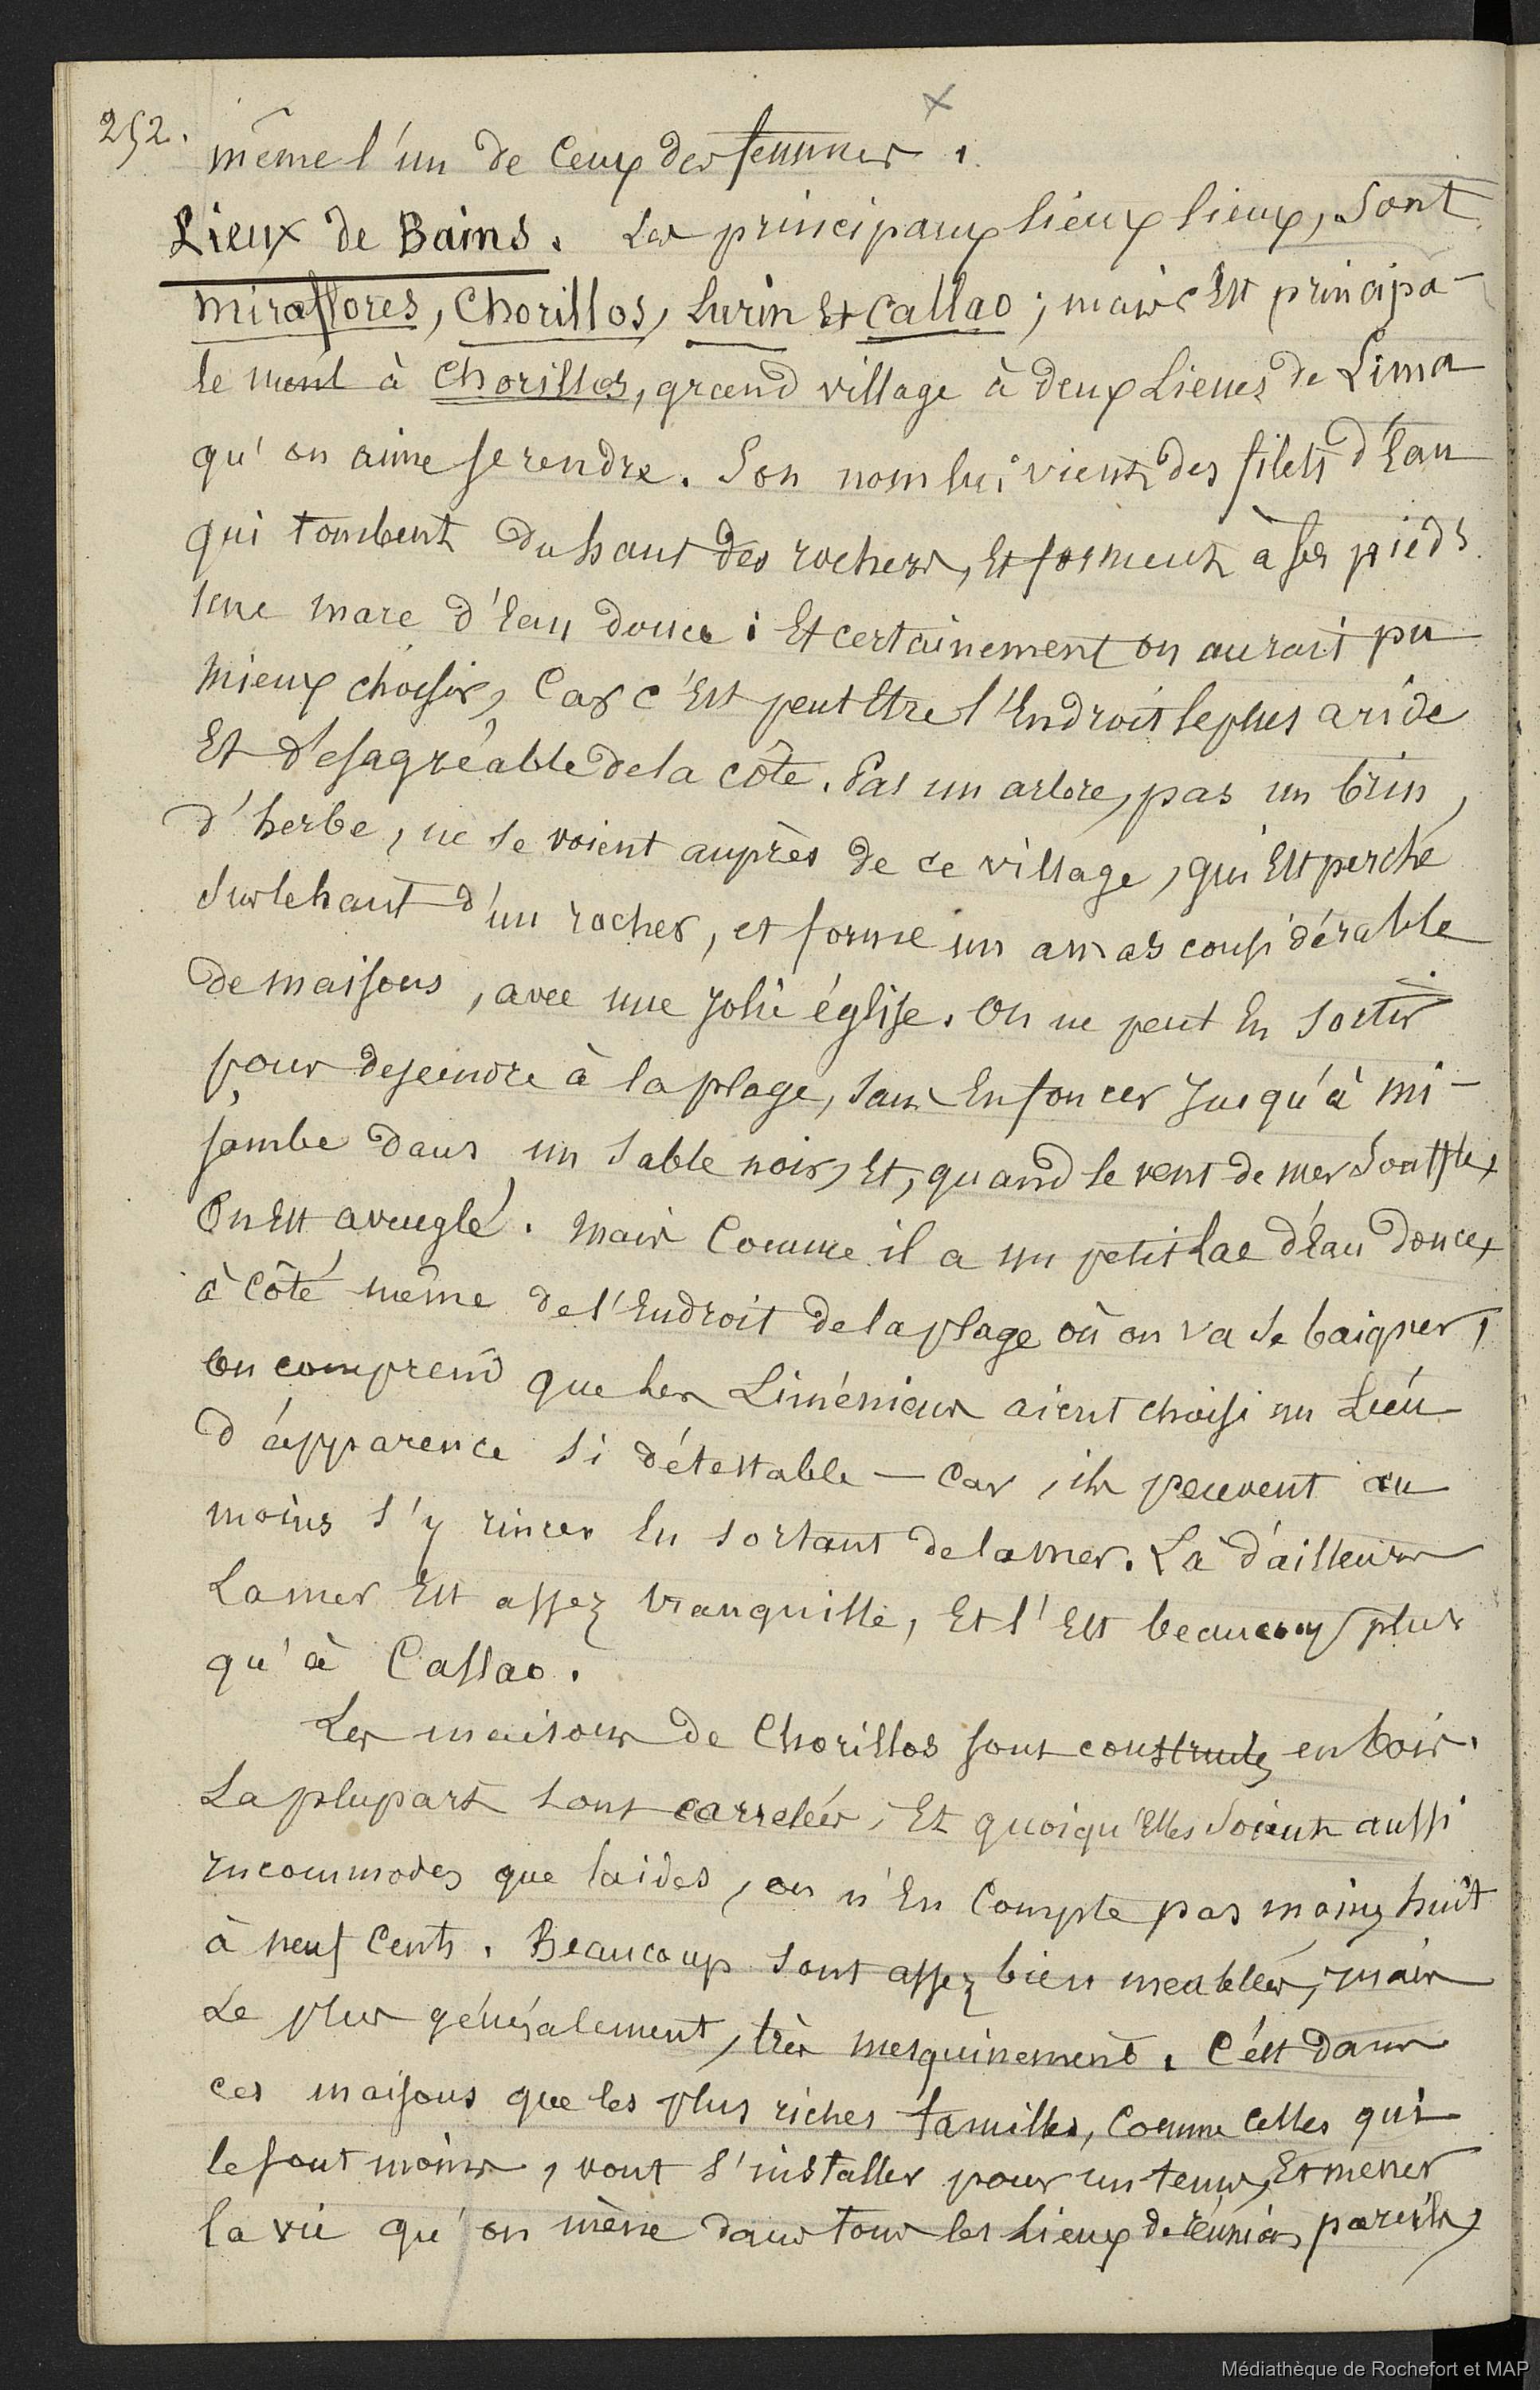 252.
même l'un de ceux des femmes.
Lieux de Bains. Les principaux lieux lieux, sont
miraflores, Chorillos, Lurin Et Callao; mais c'Est principa-
lement à Chorillos, grand village à deux Lieues de Lima
qu'on aime se rendre. Son nom lui vient des filets d'Eau
qui tombent du haut des rochers, Et forment à ses pieds
une mare d'Eau douce : Et certainement on aurait pu
mieux choisir, Car c'Est peut Etre l'Endroit le plus aride
Et désagréable de la côte. Pas un arbre, pas un brin,
d'herbe, ne se voient auprès de ce village, qui Est perché
Sur le haut d'un rocher, et forme un amas considérable
de maisons, avec une jolie église. On ne peut En sortir
pour descendre à la plage, sans Enfoncer jusqu'à mi-
jambe dans un sable noir, Et, quand le vent de mer Souffle,
On Est aveuglé. Mais Comme il a un petit lac d'Eau douce,
à Côté même de l'Endroit de la plage où on va se baigner,
on comprend que les Liméniens aient choisi un Lieu
d'apparence si détestable — Car, ils peuvent au
moins s'y rincer En sortant de la mer. Là d'ailleurs
La mer Est assez tranquille, Et l'Est beaucoup plus
qu'à Callao.
Les maisons de Chorillos sont construites en bois.
La plupart sont carrelées, Et quoiqu'Elles Soient aussi
incommodes que laides, on n'En Compte pas moins huit
à neuf Cents. Beaucoup sont assez bien meublées, mais
Le plus généralement, très mesquinement. C'est dans
ces maisons que les plus riches familles, Comme celles qui
le sont moins, vont s'installer pour un tems, Et mener
la vie qu'on mène dans tous les Lieux de réunion pareils,
Médiathèque de Rochefort et MAP